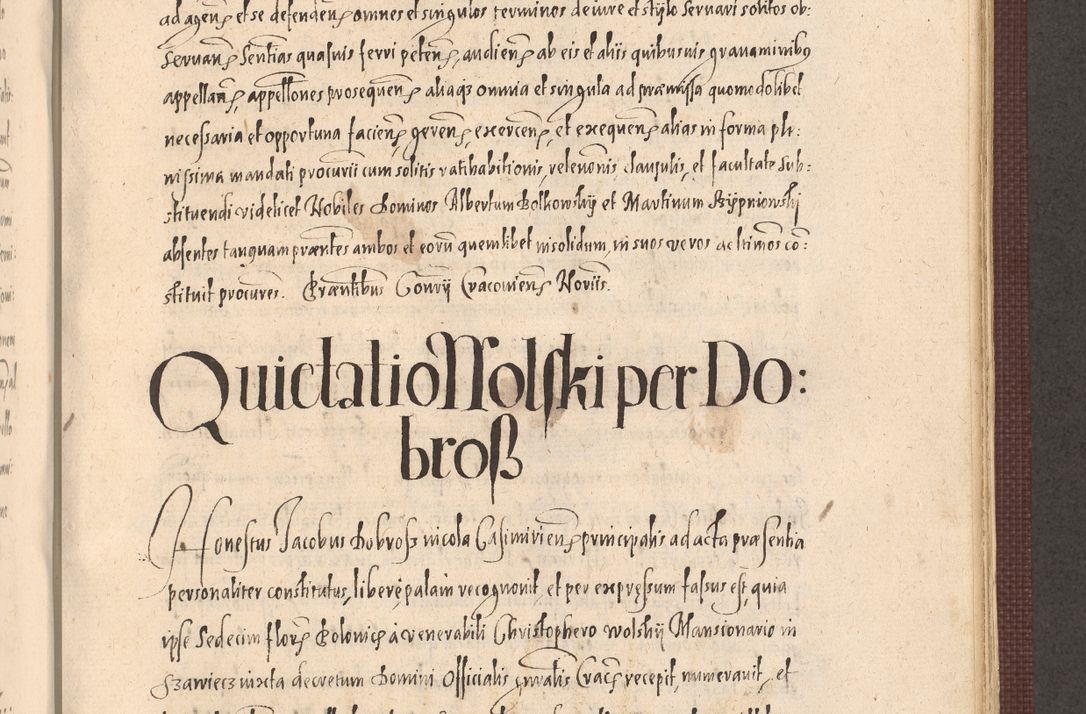 ad agenꝶ et se defendenꝶ omnes et singulos terminos de iure et stÿlo servari solitos ob:
servanꝶ Sentias quasuis ferri petenꝶ, audienꝶ ab eis et aliis quibusuis gravaminibus
appellanꝶ, appellones prosequenꝶ aliaqȝ omnia et singula ad præmissa quomodolibet
necessaria et opportuna facienꝶ, gerenꝶ, exercenꝶ, et exequenꝶ alias in forma ple:
nissima mandati procurii cum solitis ratihabitionis, relevonis, clausulis, et facultate sub:
stituendi videlicet Nobiles Dominos Albertum Bolkowskÿ et Martinum Rÿpniowskj
absentes tanquam præntes ambos et eorũ quemlibet insolidum, in suos veros ac ltimos cõ:
stituit procures. Præntibus Convÿ Cracovienꝶ Noriis.
Quietatio Wolski per Do:
broß
Honestus Jacobus Dobrosz incola Casimirienꝶ principalis ad acta præsentia
personaliter constitutus, liberè palàm recognovit, et per expressum fassus est, quia
ipse Sedecim florꝶ Polonicꝶ à venerabili Christophero Wolskÿ Mansionario in
Szawierz iuxta decretum Domini Officialis gnralis Cracꝶ recepit, numeravit, et